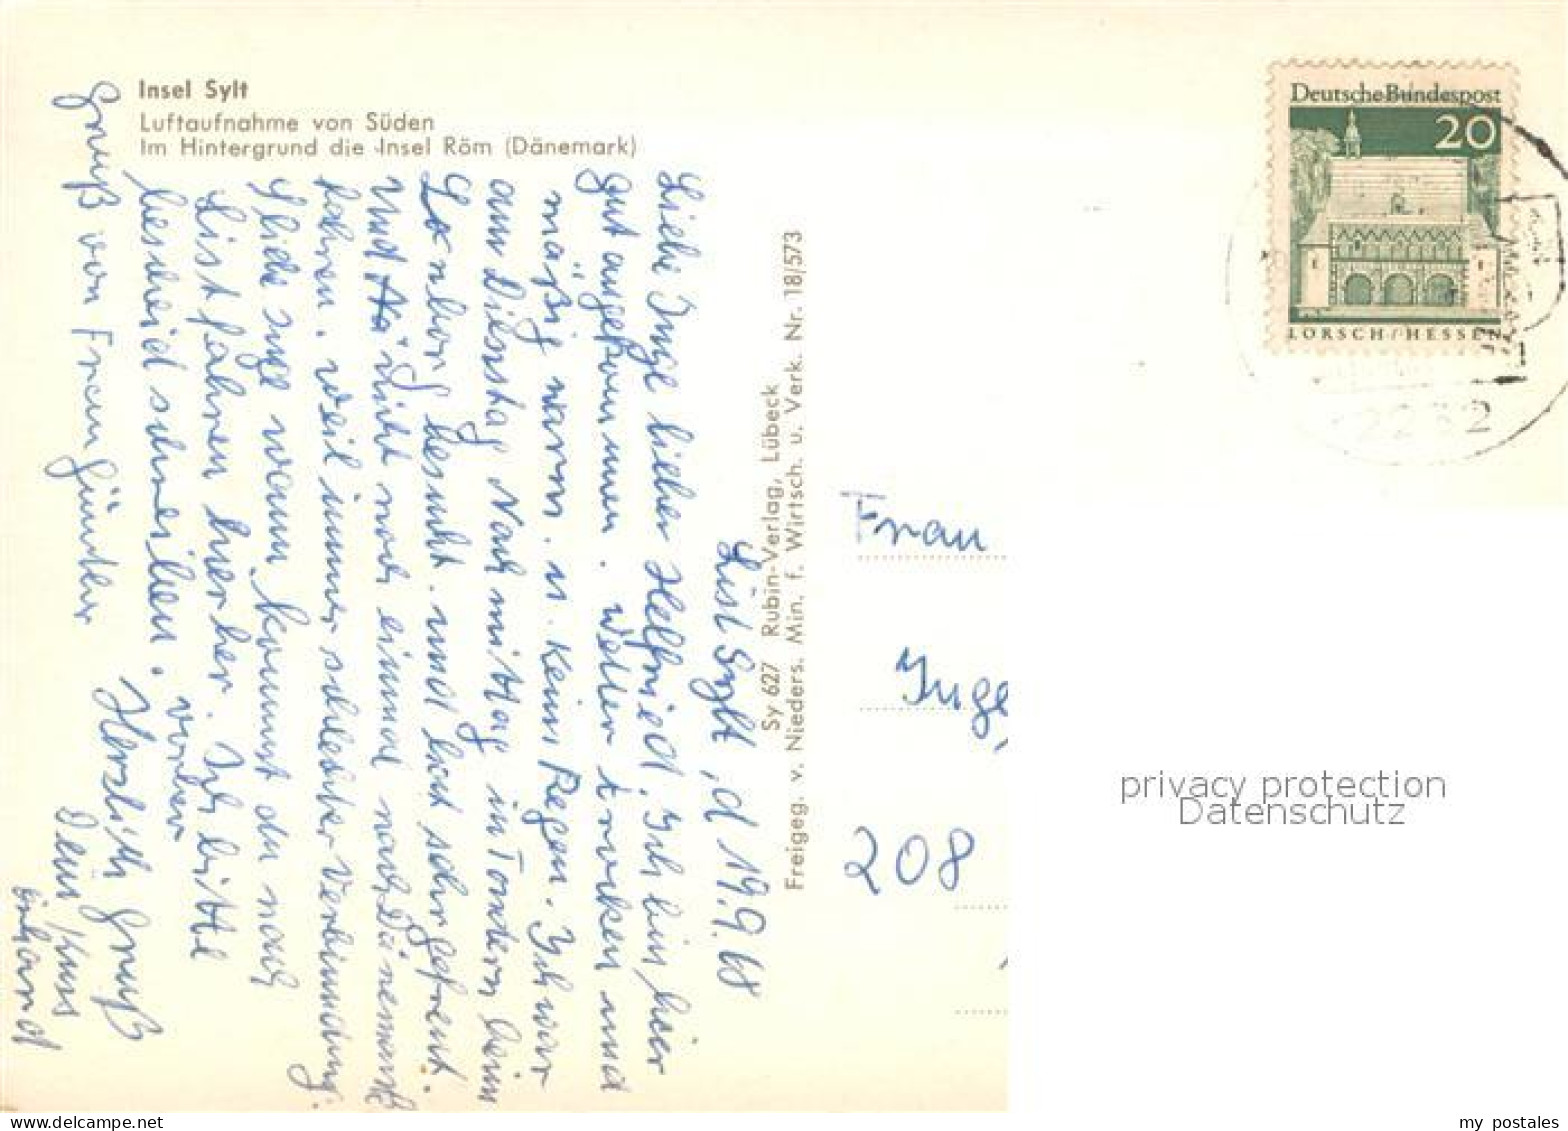 Insel Sylt
Luftaufnahme von Süden
Im Hintergrund die Insel Röm (Dänemark)
List Sylt, d 19.9.68
Liebe Inge lieber Helfried, Ich bin hier
gut angekommen. Wetter trocken und
mäßig warm. u. kein Regen. Ich war
am Dienstag Nachmittag in Tondern beim
besucht. und hat sehr gefreut.
Und nicht noch einmal nach Dänemark
fahren. weil immer schlechter Verbindung.
Inge wann kommst du nach
List fahren hierher. Ich bitte
bescheid schreiben. vorher
Herzlich Gruß
Gruß von Frau Günther
Dein
Sy 627 Rubin-Verlag, Lübeck
Freigeg. v. Nieders. Min. f. Wirtsch. u. Verk. Nr. 18/573
Deutsche Bundespost
20
LORSCH/HESSEN
2282
Frau
Inge
208
privacy protection
Datenschutz
my postales